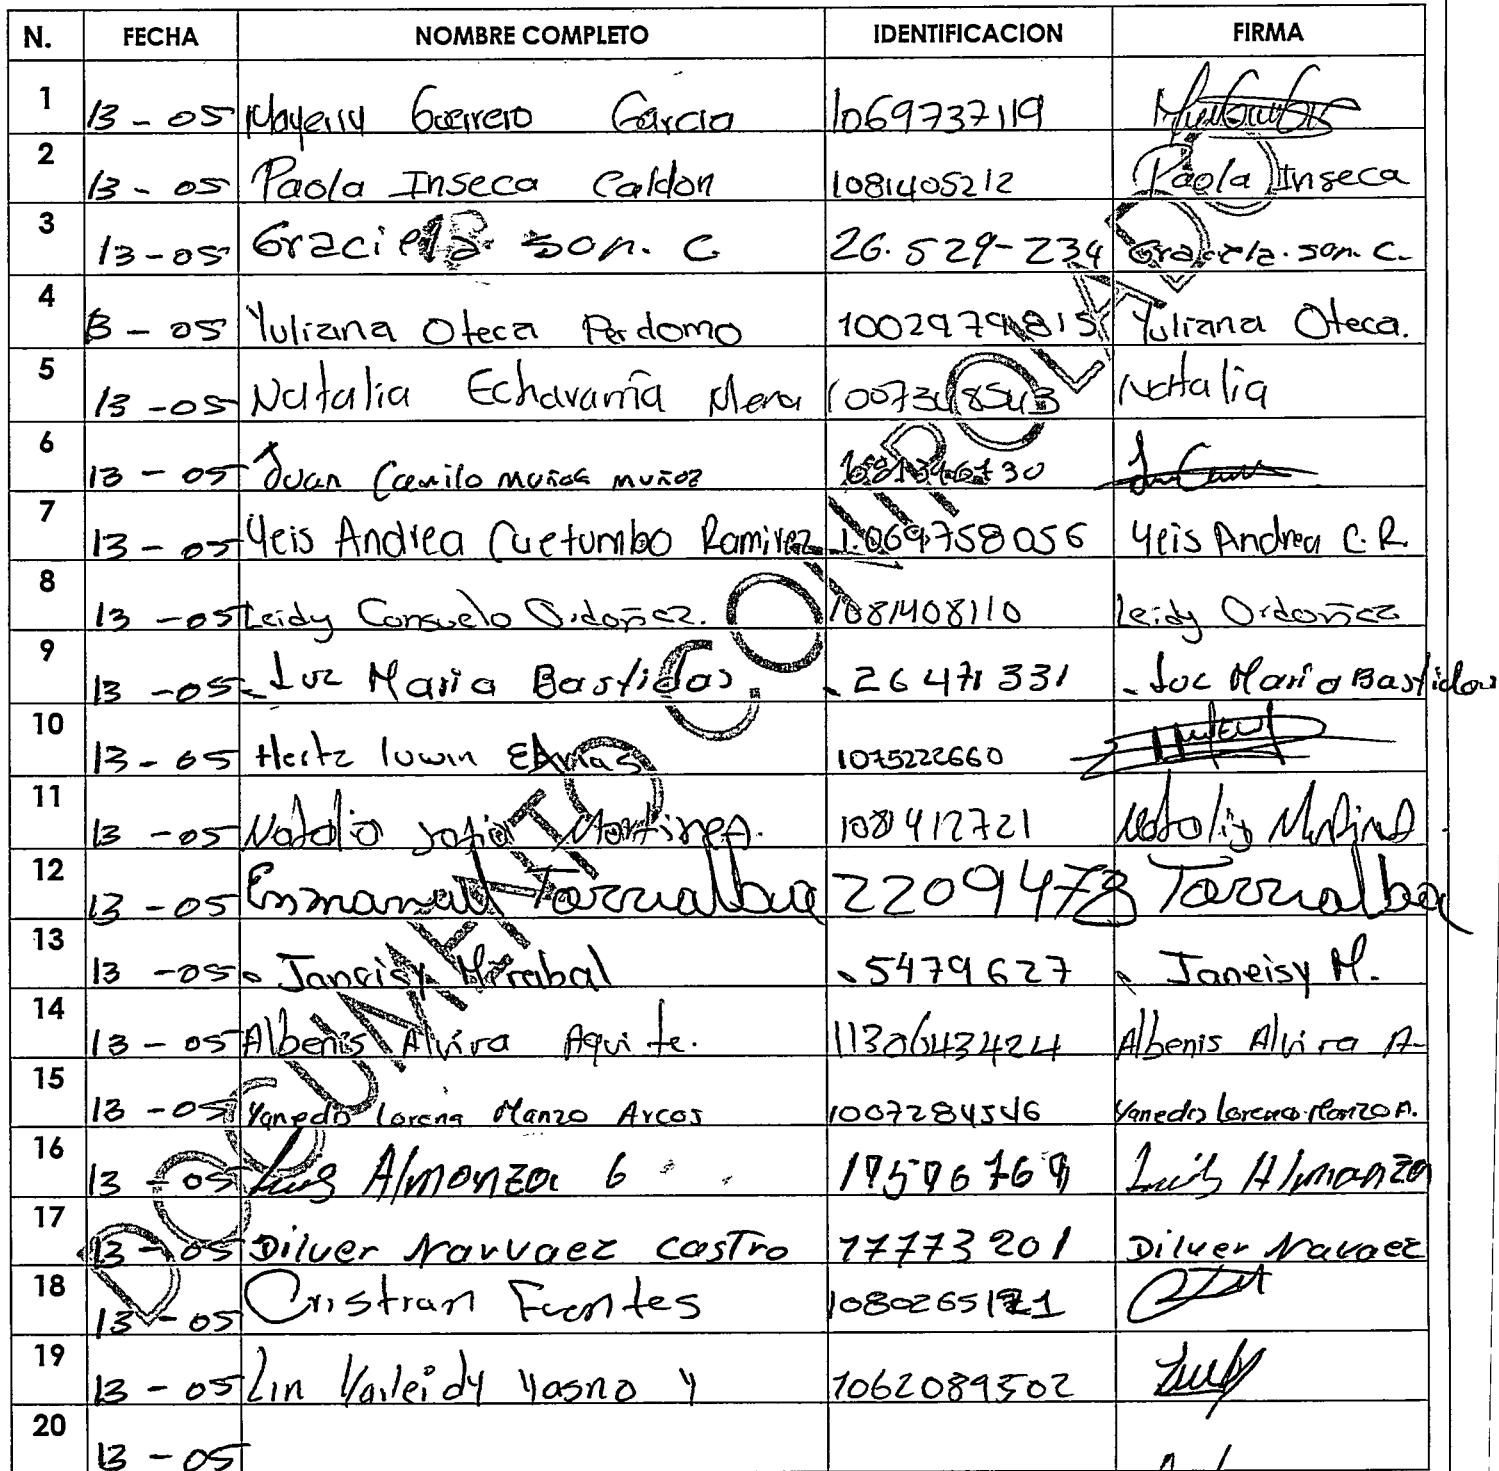 N. FECHA NOMBRE COMPLETO IDENTIFICACION FIRMA
1 13-05 Mayerly Guerrero Garcia 1069737119
2 13-05 Paola Inseca Caldon 1081405212 Paola Inseca
3 13-05 Graciela son. C 26.529-234 Graciela. son. C.
4 13-05 Yuliana Oteca Perdomo 1002979815 Yuliana Oteca.
5 13-05 Natalia Echavarría Mena 1007348543 Natalia
6 13-05 Juan Camilo muñoz muñoz
7 13-05 Yeis Andrea Cuetumbo Ramirez 1.069.758056 Yeis Andrea C.R.
8 13-05 Leidy Consuelo Ordoñez. 1081408110 Leidy Ordoñez
9 13-05 Luz Maria Bastidas 26471331 Luz Maria Bastidas
10 13-05 Hertz 1075222660
11 13-05 Natalia Sofia Martinez. Natalia Martinez
12 13-05 Enmanuel Torrealba 22094738 Torrealba
13 13-05 Janeisy Mirabal 5479627 Janeisy M.
14 13-05 Albenis Alvira Aquite. 1130643424 Albenis Alvira A-
15 13-05 Lorena Manzo Arcos 1007284546 Lorena Manzo A.
16 13-05 Luis Almanza G Luis Almanza
17 13-05 Dilver Narvaez castro 17773201 Dilver Navaez
18 13-05 Cristian Fuentes
19 13-05 Lin Yarleidy Yasno Y 1062089502
20 13-05
DOCUMENTO CONTROLADO